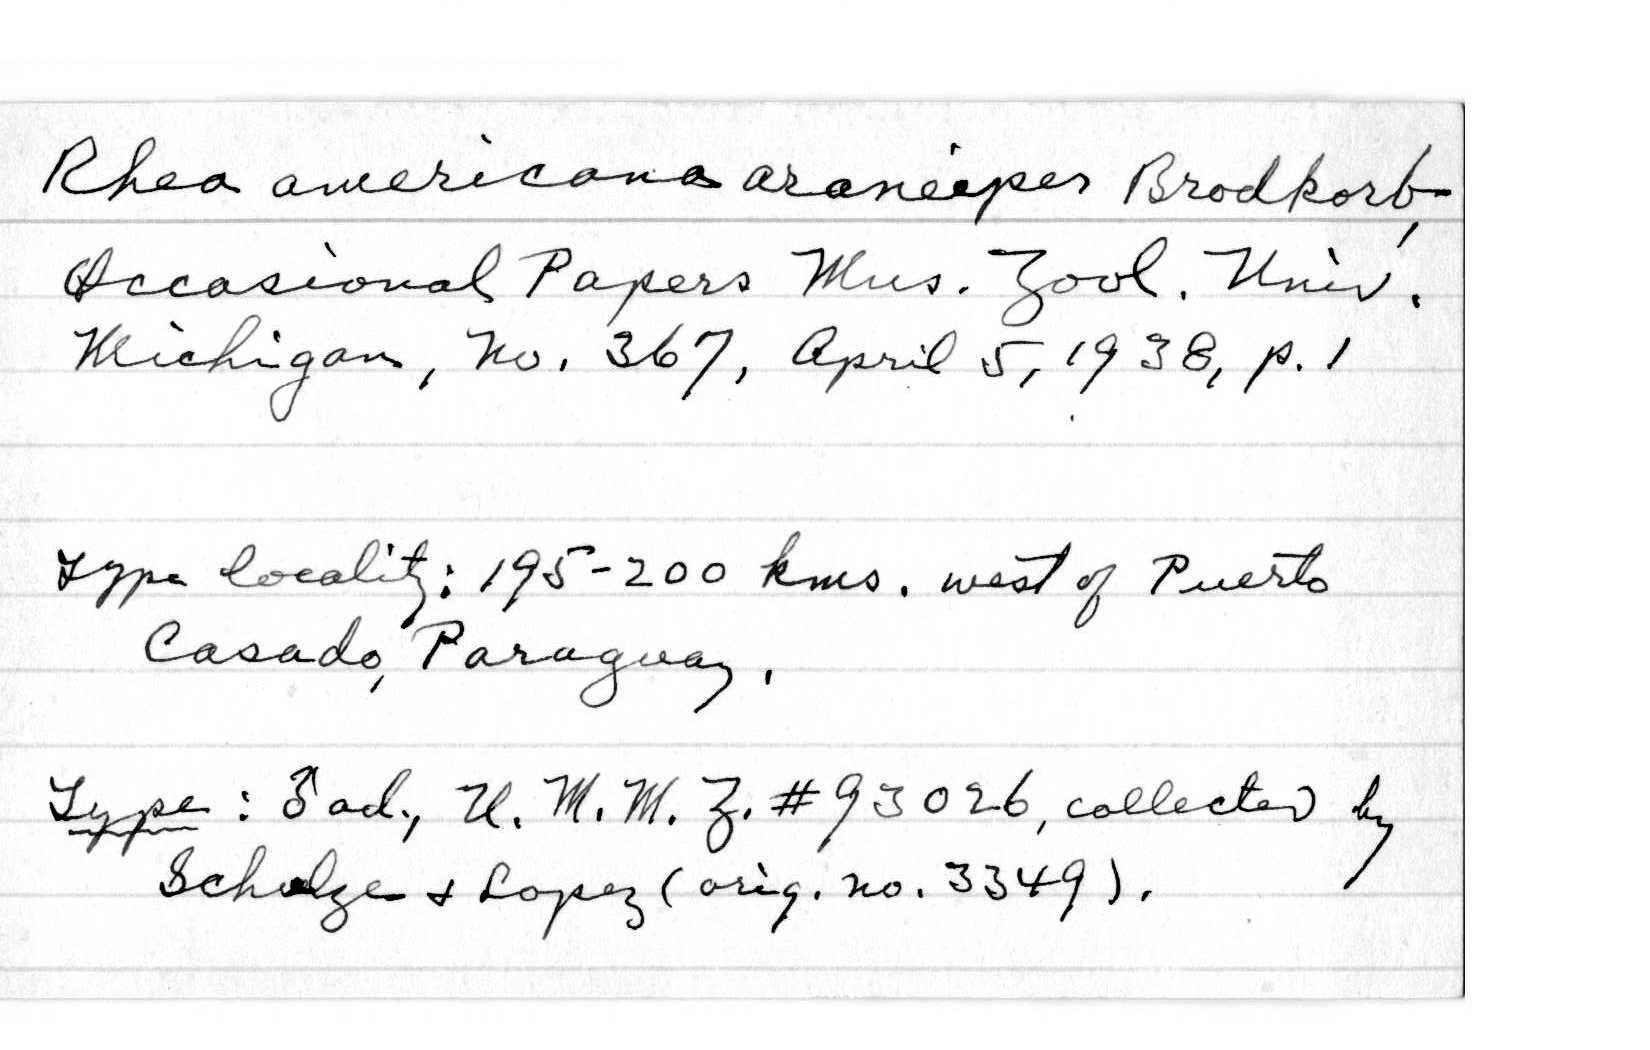 Rhea americana araneipes Brodkorb,
Occasional Papers Mus. Zool. Univ.
Michigan, No. 367, April 5, 1938, p. 1
Type locality: 195-200 kms. west of Puerto
Casado, Paraguay.
Type: ♂ ad., U. M. M. Z. #93026, collected by
Schulze & Lopez (orig. no. 3349).